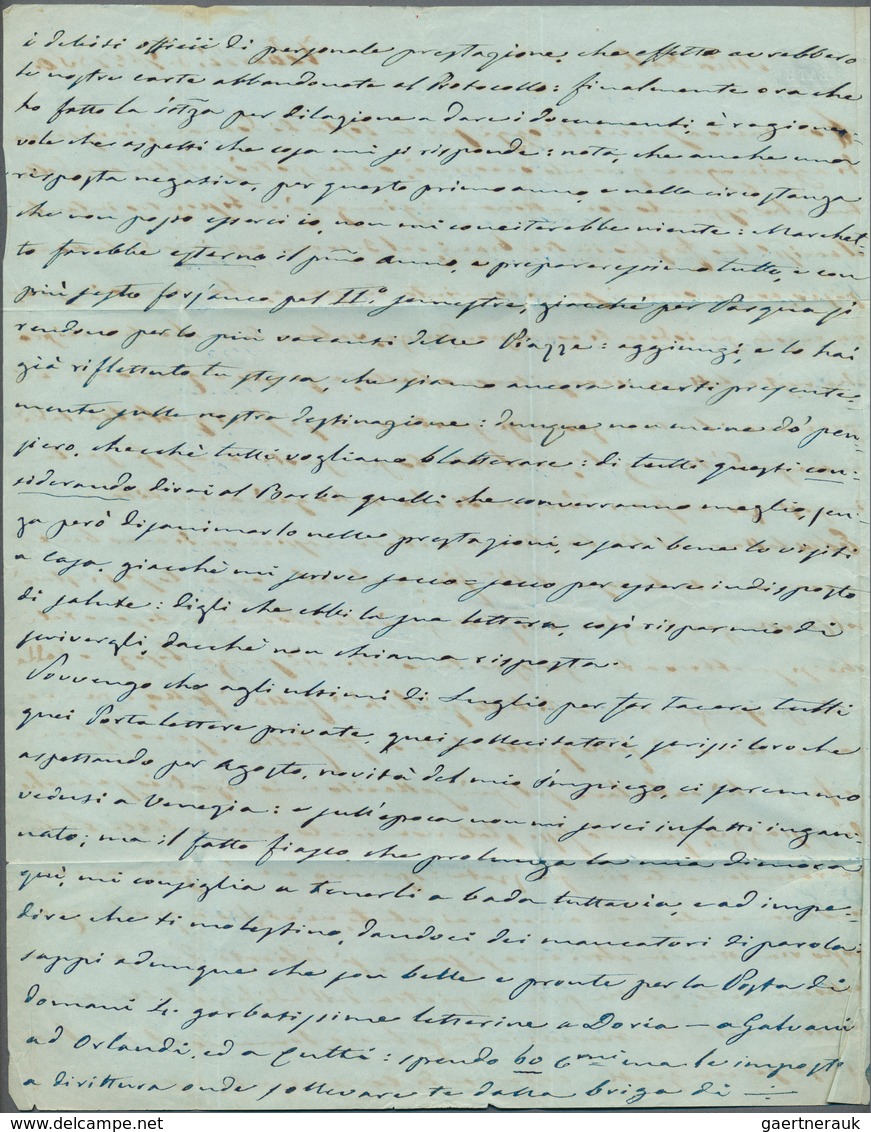 i debiti officii di personale prestazione, che effetto avrebbero
le nostre carte abbandonate al Protocollo: finalmente ora che
ho fatto la istza per dilazione a darci i documenti, è ragione-
vole che aspetti che cosa mi si risponde: nota, che anche una
risposta negativa, per questo primo anno, e nella circostanza
che non posso esserci io, non mi conciterebbe niente: Marchet-
to farebbe esterno il pmo anno, e prepareressimo tutto, e con
più sesto fors'anco pel II.o semestre, giacchè per Pasqua si
rendono per lo più vacanti delle Piazze: aggiungi, e lo hai
già riflettuto tu stessa, che siamo ancora incerti presente-
mente sulla nostra destinazione: dunque non me ne dò pen-
siero, checchè tutti vogliano blatterare: di tutti questi con-
siderando dirai al Barba quelli che converranno meglio, sen-
za però disanimarlo nelle prestazioni, e sarà bene lo visiti
a casa, giacchè mi scrive secco=secco per essere indisposto
di salute: digli che ebbi la sua lettera, così risparmio di
scrivergli, dacchè non chiama risposta.
Sovvengo che agli ultimi di Luglio per far tacere tutti
quei Porta lettere private, quei sollecitatori, scrissi loro che
aspettando per Agosto, novità del mio impiego, ci saremmo
veduti a Venezia: e sull'epoca non mi sarei infatti ingan-
nato; ma il fatto fiasco che prolunga la mia dimora
quì, mi consiglia a tenerli a bada tuttavia, e ad impe-
dire che ti molestino, dandoci dei mancatori di parola:
sappi adunque che son belle e pronte per la Posta di
domani 4 garbatissime letterine a Doria — a Galvani
ad Orlandi, ed a Cutti: spendo 60 Cmi ma le imposto
a dirittura onde sollevare te dalla briga di —